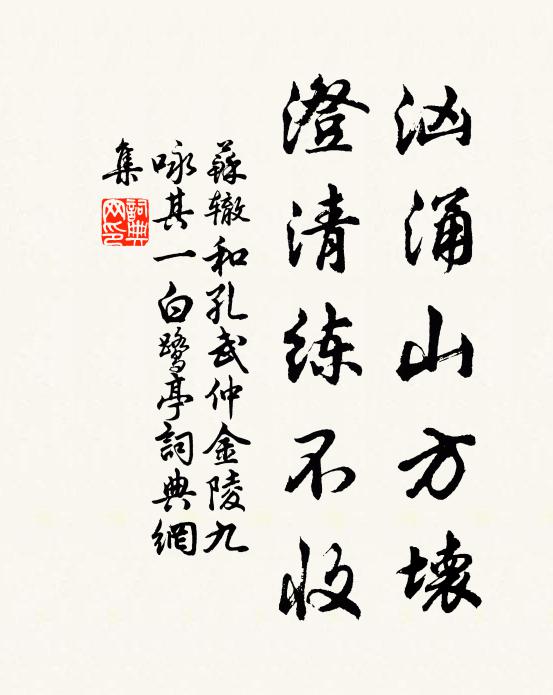 汹涌山方壞
澄清练不收
蘇辙和孔武仲金陵九
咏其一白鹭亭詞典網
集
詞典网印